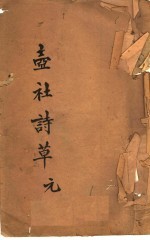 壺社詩草元